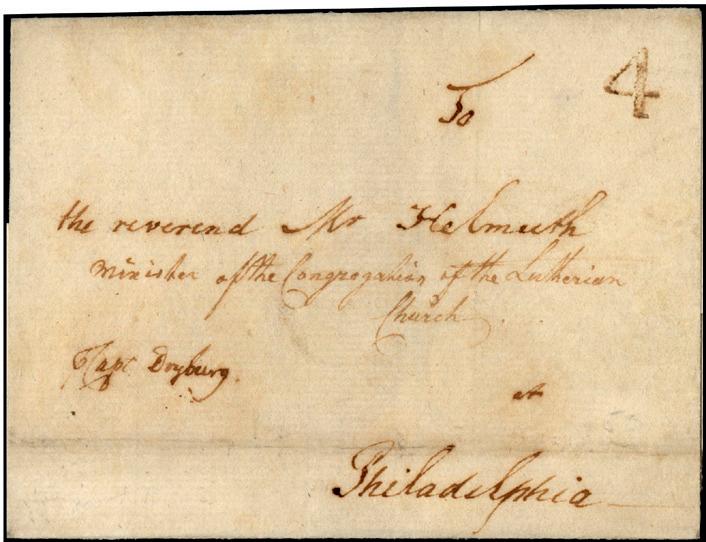 4
To
the reverend Mr Helmuth
minister of the Congregation of the Lutherian
Church
Capt Dryburg.
at
Philadelphia